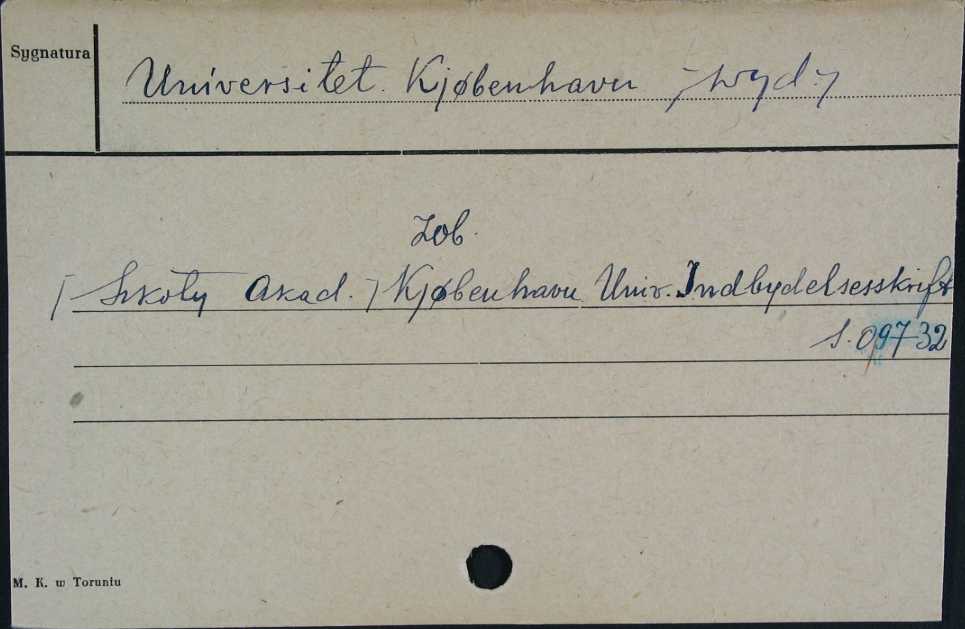 Sygnatura
Universitet. Kjøbenhavn /wyd./
Zob.
/Szkoły Akad./ Kjøbenhavn. Univ. Indbydelsesskrift
S. 09732
M. K. w Toruniu